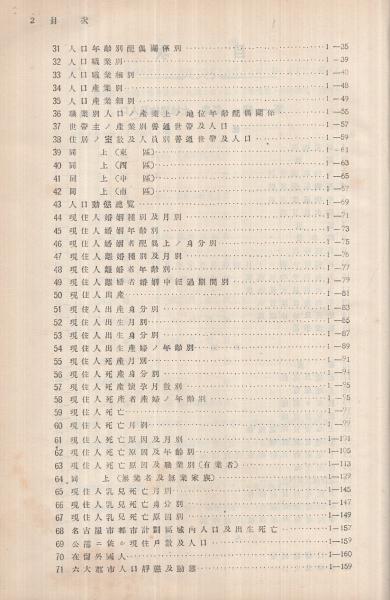 2 目次
31 人口年齡別配偶關係別 1—35
32 人口職業別 1—39
33 人口職業細別 1—40
34 人口産業別 1—48
35 人口産業細別 1—49
36 職業別人口ノ産業上ノ地位年齡配偶關係 1—55
37 世帶主ノ産業別普通世帶及人口 1—57
38 住居ノ室數及人員別普通世帶及人口 1—59
39 同上(東區) 1—61
40 同上(西區) 1—63
41 同上(中區) 1—65
42 同上(南區) 1—67
43 人口動態總覽 1—69
44 現住人婚姻種別及月別 1—71
45 現住人婚姻年齡別 1—73
46 現住人婚姻者配偶上ノ身分別 1—75
47 現住人離婚種別及月別 1—76
48 現住人離婚者年齡別 1—77
49 現住人離婚者婚姻中經過期間別 1—79
50 現住人出産 1—81
51 現住人出産身分別 1—83
52 現住人出生月別 1—85
53 現住人出生身分別 1—87
54 現住人出生産婦ノ年齡別 1—89
55 現住人死産月別 1—91
56 現住人死産身分別 1—94
57 現住人死産懷孕月數別 1—95
58 現住人死産者産婦ノ年齡別 1—95
59 現住人死亡
60 現住人死亡月別
61 現住人死亡原因及月別 1—101
62 現住人死亡原因及年齡別 1—105
63 現住人死亡原因及職業別(有業者) 1—113
64 同上(無業者及無業家族) 1—129
65 現住人乳兒死亡月別 1—145
66 現住人乳兒死亡身分別 1—147
67 現住人乳兒死亡原因別 1—149
68 名古屋市都市計劃區域內人口及出生死亡 1—157
69 公簿ニ依ル現住戶數及人口 1—159
70 在留外國人 1—160
71 六大都市人口靜態及動態 1—159